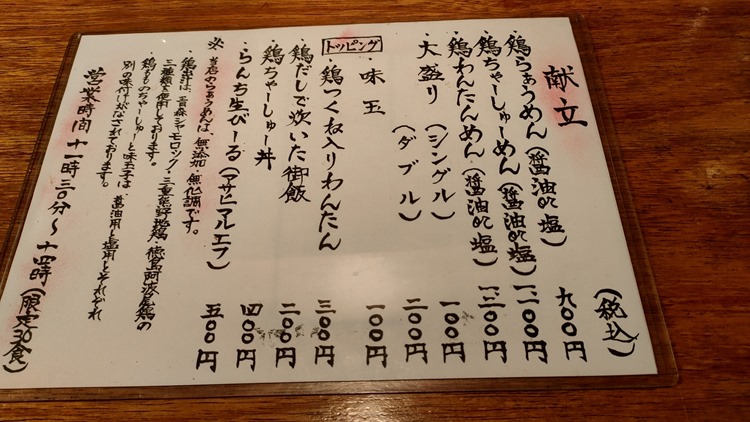 献立
(税込)
・鶏らぁうめん(醤油or塩) 九〇〇円
・鶏ちゃーしゅーめん(醤油or塩) 一二〇〇円
・鶏わんたんめん(醤油or塩) 一二〇〇円
・大盛り(シングル) 一〇〇円
(ダブル) 二〇〇円
・味玉 一〇〇円
トッピング
・鶏つくね入りわんたん 三〇〇円
・鶏だしで炊いた御飯 二〇〇円
・鶏ちゃーしゅー丼 四〇〇円
・らんち生びーる(アサヒマルエフ) 五〇〇円
※当店のらぁうめんは、無添加・無化調です。
・鶏出汁は、青森シャモロック・三重熊野地鶏・徳島阿波尾鶏の
三種類を使用しております。
・鶏もものちゃーしゅーと味玉子は、醤油用と塩用とそれぞれ
別の味付けがなされております。
営業時間 十一時三〇分～十四時(限定30食)